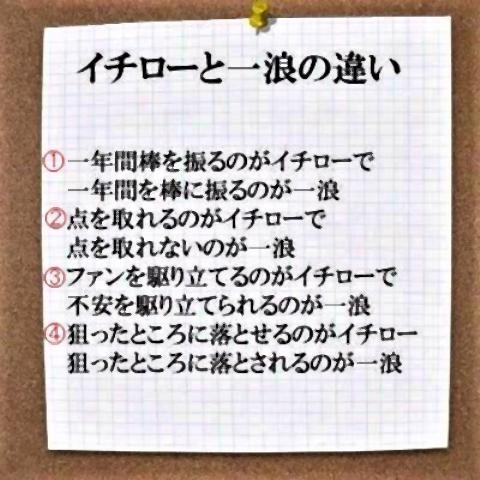 イチローと一浪の違い
①一年間棒を振るのがイチローで
一年間を棒に振るのが一浪
②点を取れるのがイチローで
点を取れないのが一浪
③ファンを駆り立てるのがイチローで
不安を駆り立てられるのが一浪
④狙ったところに落とせるのがイチロー
狙ったところに落とされるのが一浪